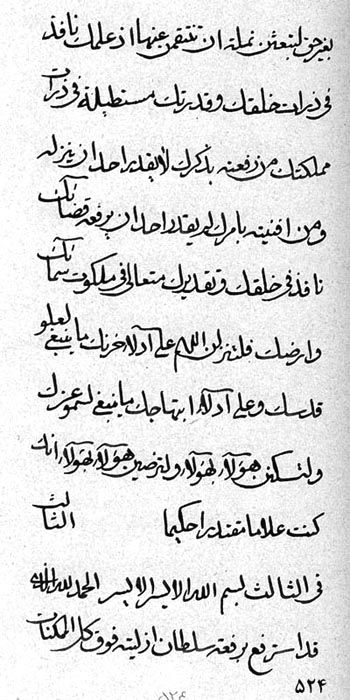 بغیر حق لتبعثن نملة ان تنتقمن عنها اذ علمك نافذ
فی ذرات خلقك وقدرتك مستطیلة فی ذرات
مملكتك من رفعته بذكرك لا یقدر احد ان ینزله
ومن افنیته بامرك لم یقدر احد ان یرفعه قضائك
نافذ فی خلقك وتقدیرك متعالی فی ملكوت سمائك
وارضك فلتنزلن اللهم علی ادلاء حزنك ما ینبغی لعلو
قدسك وعلی ادلاء ابتهاجك ما ینبغی لسمو عزك
ولتسكنن هؤلاء لهؤلاء ولترضین هؤلاء لهؤلاء انك
كنت علاما مقتدرا حكیما الثالث
فی الثالث بسم الله الایسر الایسر الحمد لله الذی
قد استرفع برفعته سلطان ازلیته فوق كل الممكنات
۵۲۴